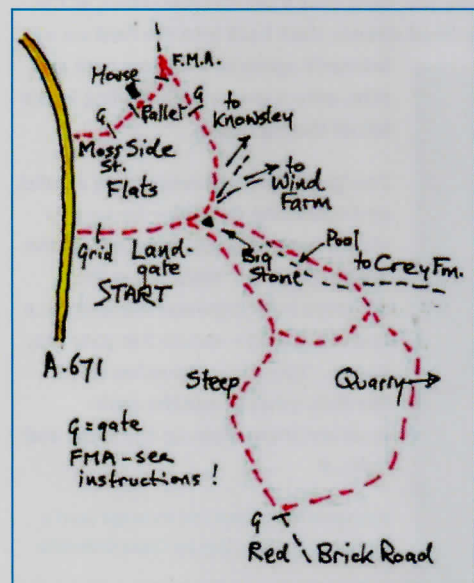 F.M.A.
House
G
to
Knowsley
G
Pallet
Moss Side
St.
Flats
to
Wind
Farm
Grid
Land-
gate
START
Big
Stone
Pool
to Crey Fm.
A.671
Steep
Quarry
G = gate
FMA - see
instructions !
G
Red Brick Road